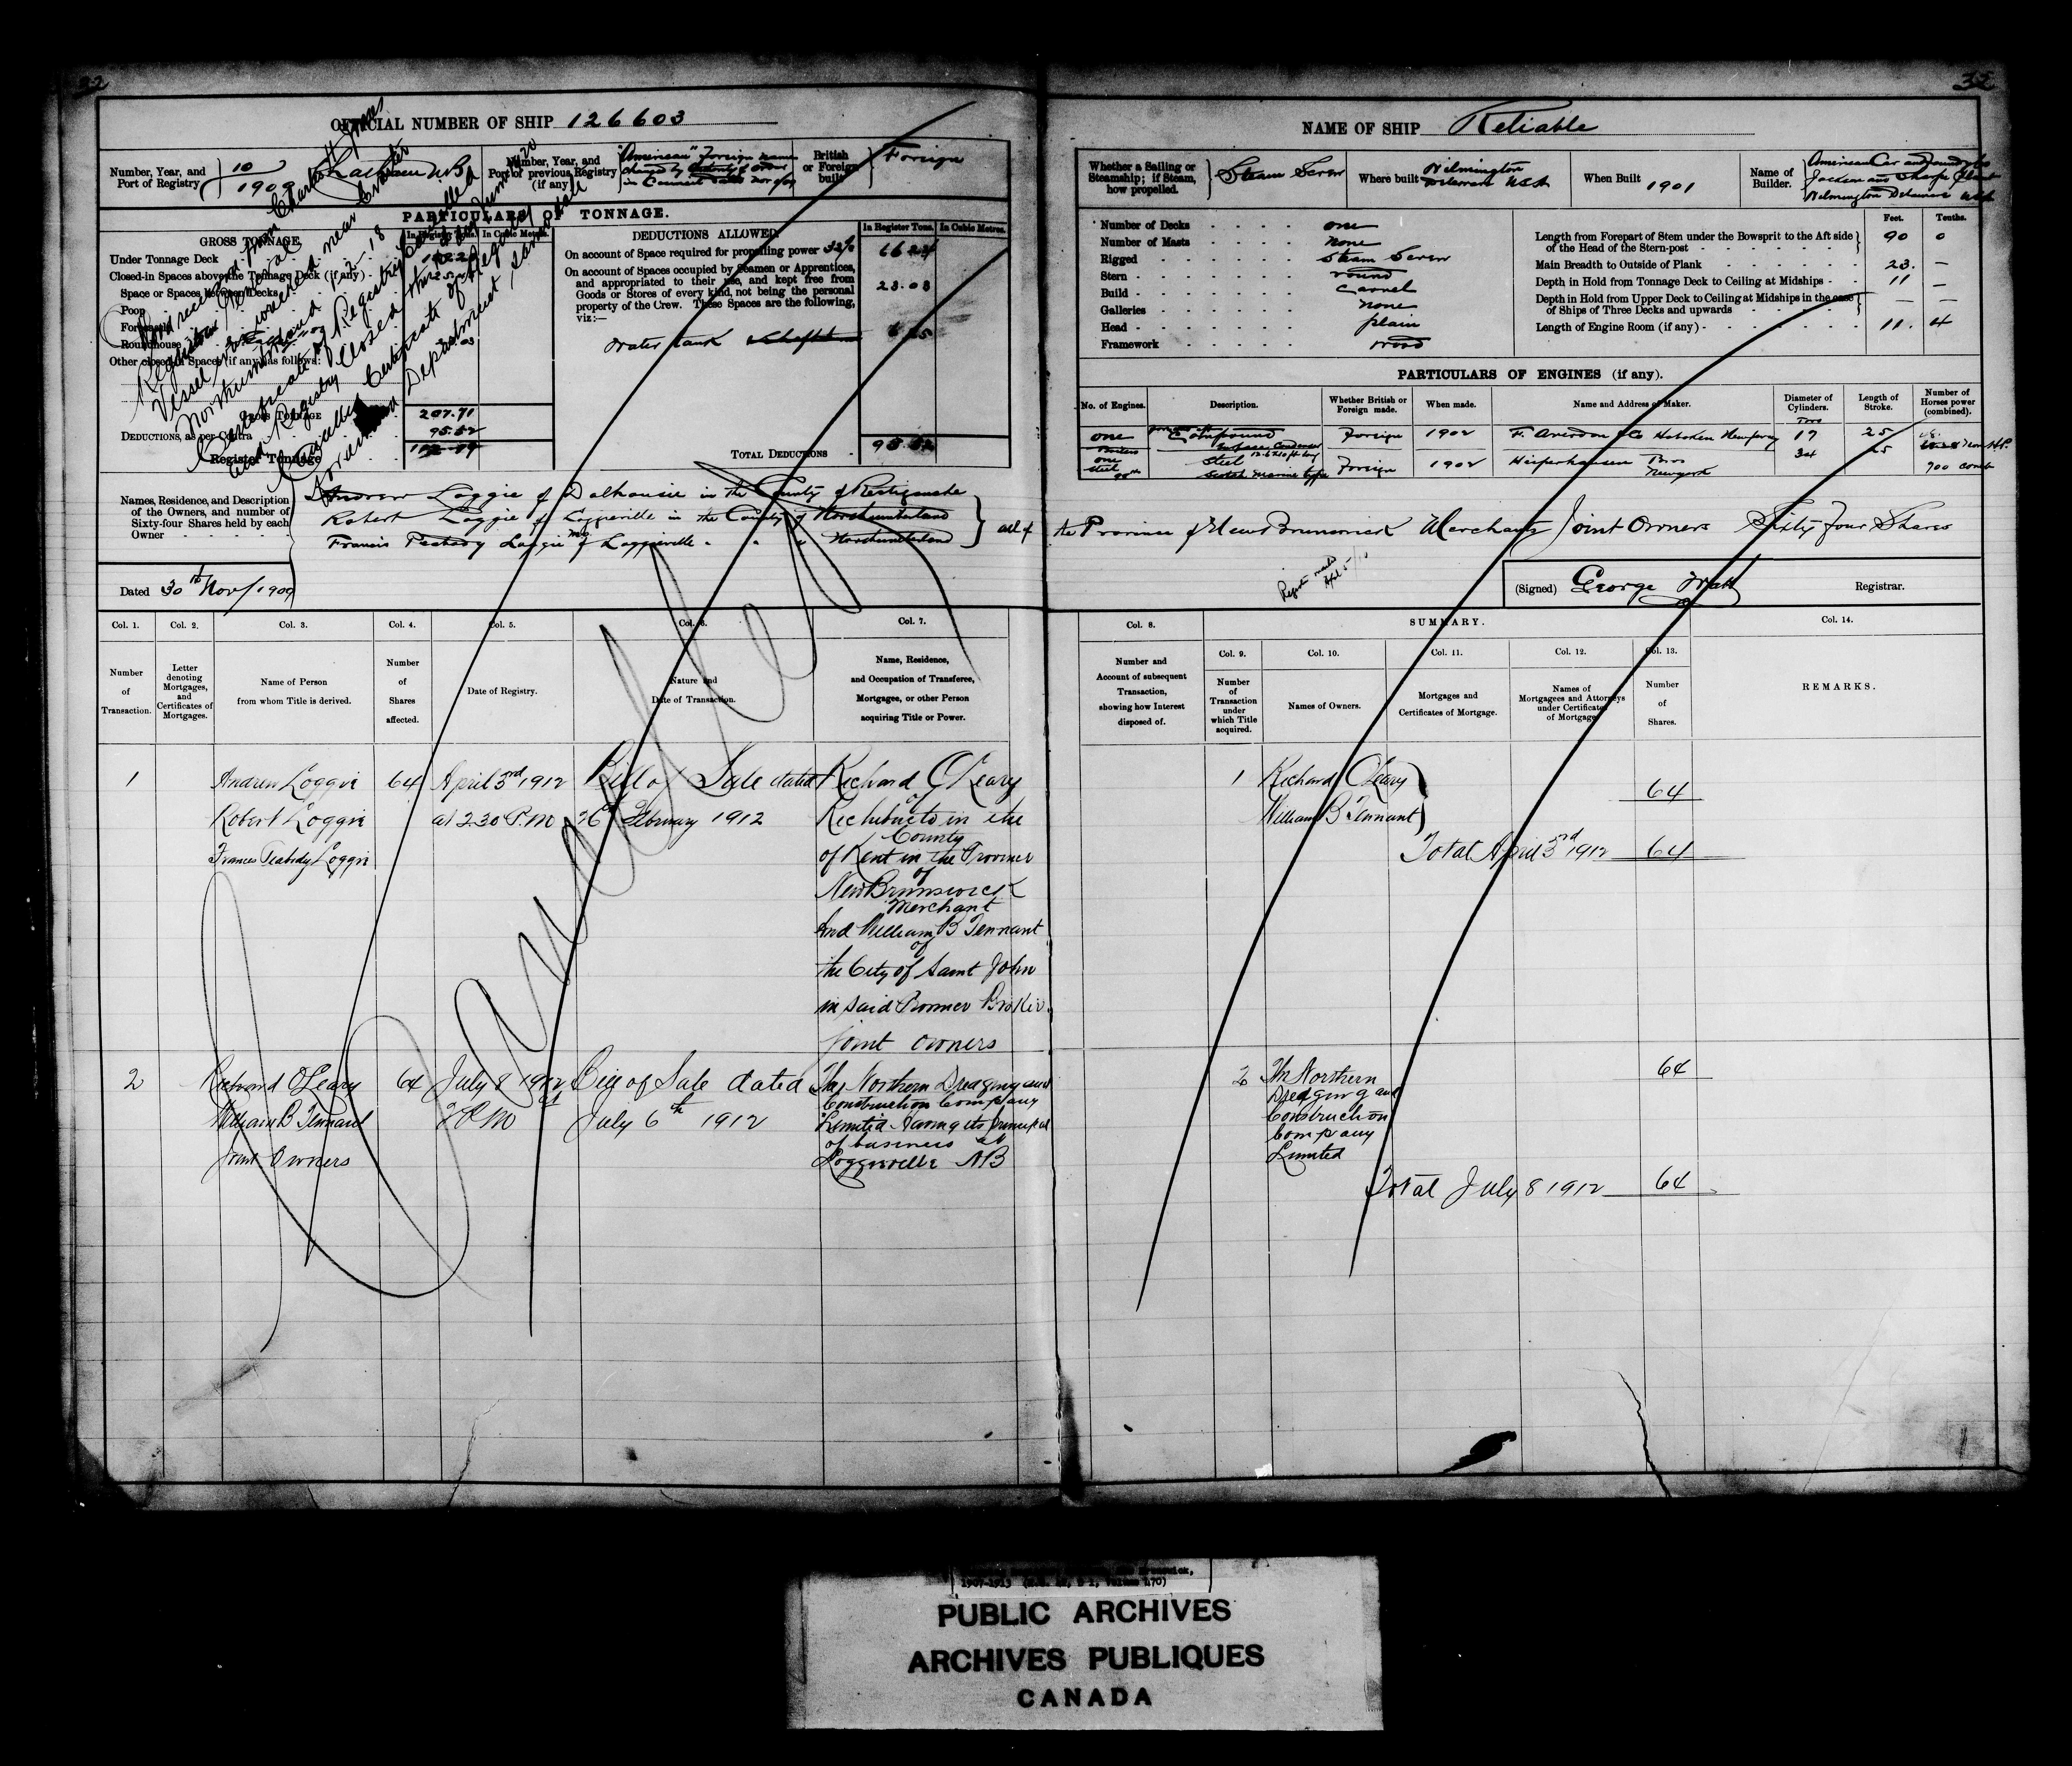 32
32
OFFICIAL NUMBER OF SHIP 126603
NAME OF SHIP Reliable
Number, Year, and Port of Registry
10
1909
Chatham N.B.
Number, Year, and Port of previous Registry (if any)
"American" Foreign name
changed by
in Council
British or Foreign built
Foreign
PARTICULARS OF TONNAGE.
GROSS TONNAGE.
In Register Tons.
In Cubic Metres.
Under Tonnage Deck
Closed-in Spaces above the Tonnage Deck (if any)
Space or Spaces between Decks
Poop
Forecastle
Roundhouse
Other closed-in Spaces (if any) as follows:
GROSS TONNAGE 207.71
DEDUCTIONS, as per Contra 95.52
Register Tonnage
DEDUCTIONS ALLOWED.
In Register Tons.
In Cubic Metres.
On account of Space required for propelling power 32% 66.24
On account of Spaces occupied by Seamen or Apprentices,
and appropriated to their use, and kept free from
Goods or Stores of every kind, not being the personal
property of the Crew. These Spaces are the following,
viz:—
23.03
Water tank 6.25
TOTAL DEDUCTIONS 95.52
Vessel
Northumberland
Certificate of Registry Cancelled
and Registry Closed this
Certificate of Registry
Department same date
Whether a Sailing or Steamship; if Steam, how propelled.
Steam Screw
Where built
Wilmington
Delaware USA
When Built 1901
Name of Builder.
American Car and Foundry Co
Jackson and Sharp Plant
Wilmington Delaware USA
Number of Decks one
Number of Masts none
Rigged Steam Screw
Stern round
Build Carvel
Galleries none
Head plain
Framework wood
Feet. Tenths.
Length from Forepart of Stem under the Bowsprit to the Aft side
of the Head of the Stern-post 90 0
Main Breadth to Outside of Plank 23. —
Depth in Hold from Tonnage Deck to Ceiling at Midships 11 —
Depth in Hold from Upper Deck to Ceiling at Midships in the case
of Ships of Three Decks and upwards — —
Length of Engine Room (if any) 11. 4
PARTICULARS OF ENGINES (if any).
No. of Engines.
Description.
Whether British or Foreign made.
When made.
Name and Address of Maker.
Diameter of Cylinders.
Length of Stroke.
Number of Horses power (combined).
one
Compound
Surface Condenser
Foreign 1902
Hoboken New Jersey
Two
17
34
25
25
one
Steel
Steel
Scotch marine type
Foreign 1902
Bros
New York
Names, Residence, and Description
of the Owners, and number of
Sixty-four Shares held by each
Owner
Andrew Loggie of Dalhousie in the County of Restigouche
Robert Loggie of Loggieville in the County of Northumberland
Francis Peabody Loggie of Loggieville " " " Northumberland
all of the Province of New Brunswick Merchants Joint Owners Sixty Four Shares
Dated 30th Nov/1909
(Signed) George Watt Registrar.
Col. 1.
Number of Transaction.
Col. 2.
Letter denoting Mortgages, and Certificates of Mortgages.
Col. 3.
Name of Person from whom Title is derived.
Col. 4.
Number of Shares affected.
Col. 5.
Date of Registry.
Col. 6.
Nature and Date of Transaction.
Col. 7.
Name, Residence, and Occupation of Transferee, Mortgagee, or other Person acquiring Title or Power.
Col. 8.
Number and Account of subsequent Transaction, showing how Interest disposed of.
SUMMARY.
Col. 9.
Number of Transaction under which Title acquired.
Col. 10.
Names of Owners.
Col. 11.
Mortgages and Certificates of Mortgage.
Col. 12.
Names of Mortgagees and Attorneys under Certificate of Mortgage
Col. 13.
Number of Shares.
Col. 14.
REMARKS.
Cancelled
1
Andrew Loggie
Robert Loggie
Frances Peabody Loggie
64
April 3rd 1912
at 2.30 P.M
Bill of Sale dated
26 February 1912
Richard O'Leary
of
Richibucto in the
County
of Kent in the Province
of
New Brunswick
Merchant
And William B Tennant
of
the City of Saint John
in said Province Broker
joint owners
1
Richard O'Leary
William B Tennant
64
Total April 3rd 1912 64
2
Richard O'Leary
William B Tennant
Joint Owners
64
July 8 1912 at
2 P.M
Bill of Sale dated
July 6th 1912
The Northern Dredging and
Construction Company
Limited having its principal
of business at
Loggieville NB
2
The Northern
Dredging and
Construction
Company
Limited
64
Total July 8 1912 64
PUBLIC ARCHIVES
ARCHIVES PUBLIQUES
CANADA